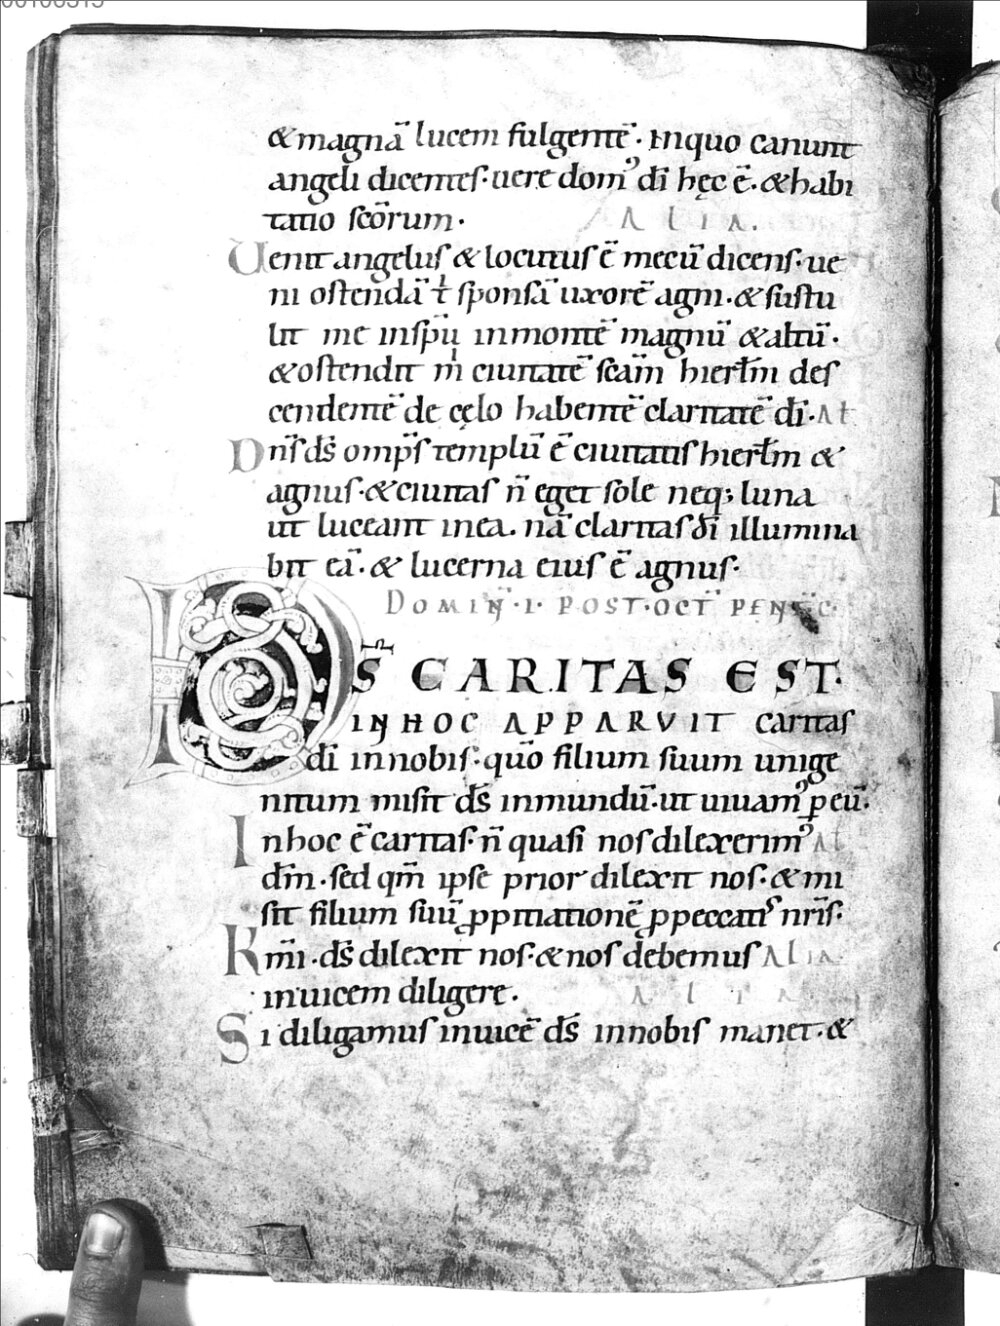 & magnā lucem fulgentē· Inquo canunt
angeli dicentes· uere domꝰ dī hęc ē· & habi
tatio scōrum·
ALIA.
Uenit angelus & locutus ē mecū dicens· ue
ni ostendā t̄ sponsā uxorē agni· & sustu
lit me inspū inmontē magnū & altū·
& ostendit m̄ ciuitatē scām hierlm̄ des
cendentē de cęlo habentē claritatē dī· AL
Dn̄s ds̄ omp̄s templū ē ciuitatis hierlm̄ &
agnus· & ciuitas n̄ eget sole neq; luna
ut luceant inea. nā claritas dī illumina
bit eā· & lucerna eius ē agnus·
DOMIN̄·I·POST·OCT̄ PENTEC·
DS̄ CARITAS EST·
INHOC APPARVIT caritas
dī innobis· quō filium suum unige
nitum misit ds̄ inmundū· ut uiuamꝰ ꝑ eū·
Inhoc ē caritas· n̄ quasi nos dilexerimꝰ AL
dm̄· sed qm̄ ipse prior dilexit nos· & mi
sit filium suū ꝓpitiationē ꝓpeccatis nr̄is·
Km̄i· ds̄ dilexit nos· & nos debemus ALIA
inuicem diligere·
ALIA
Si diligamus inuicē ds̄ innobis manet· &